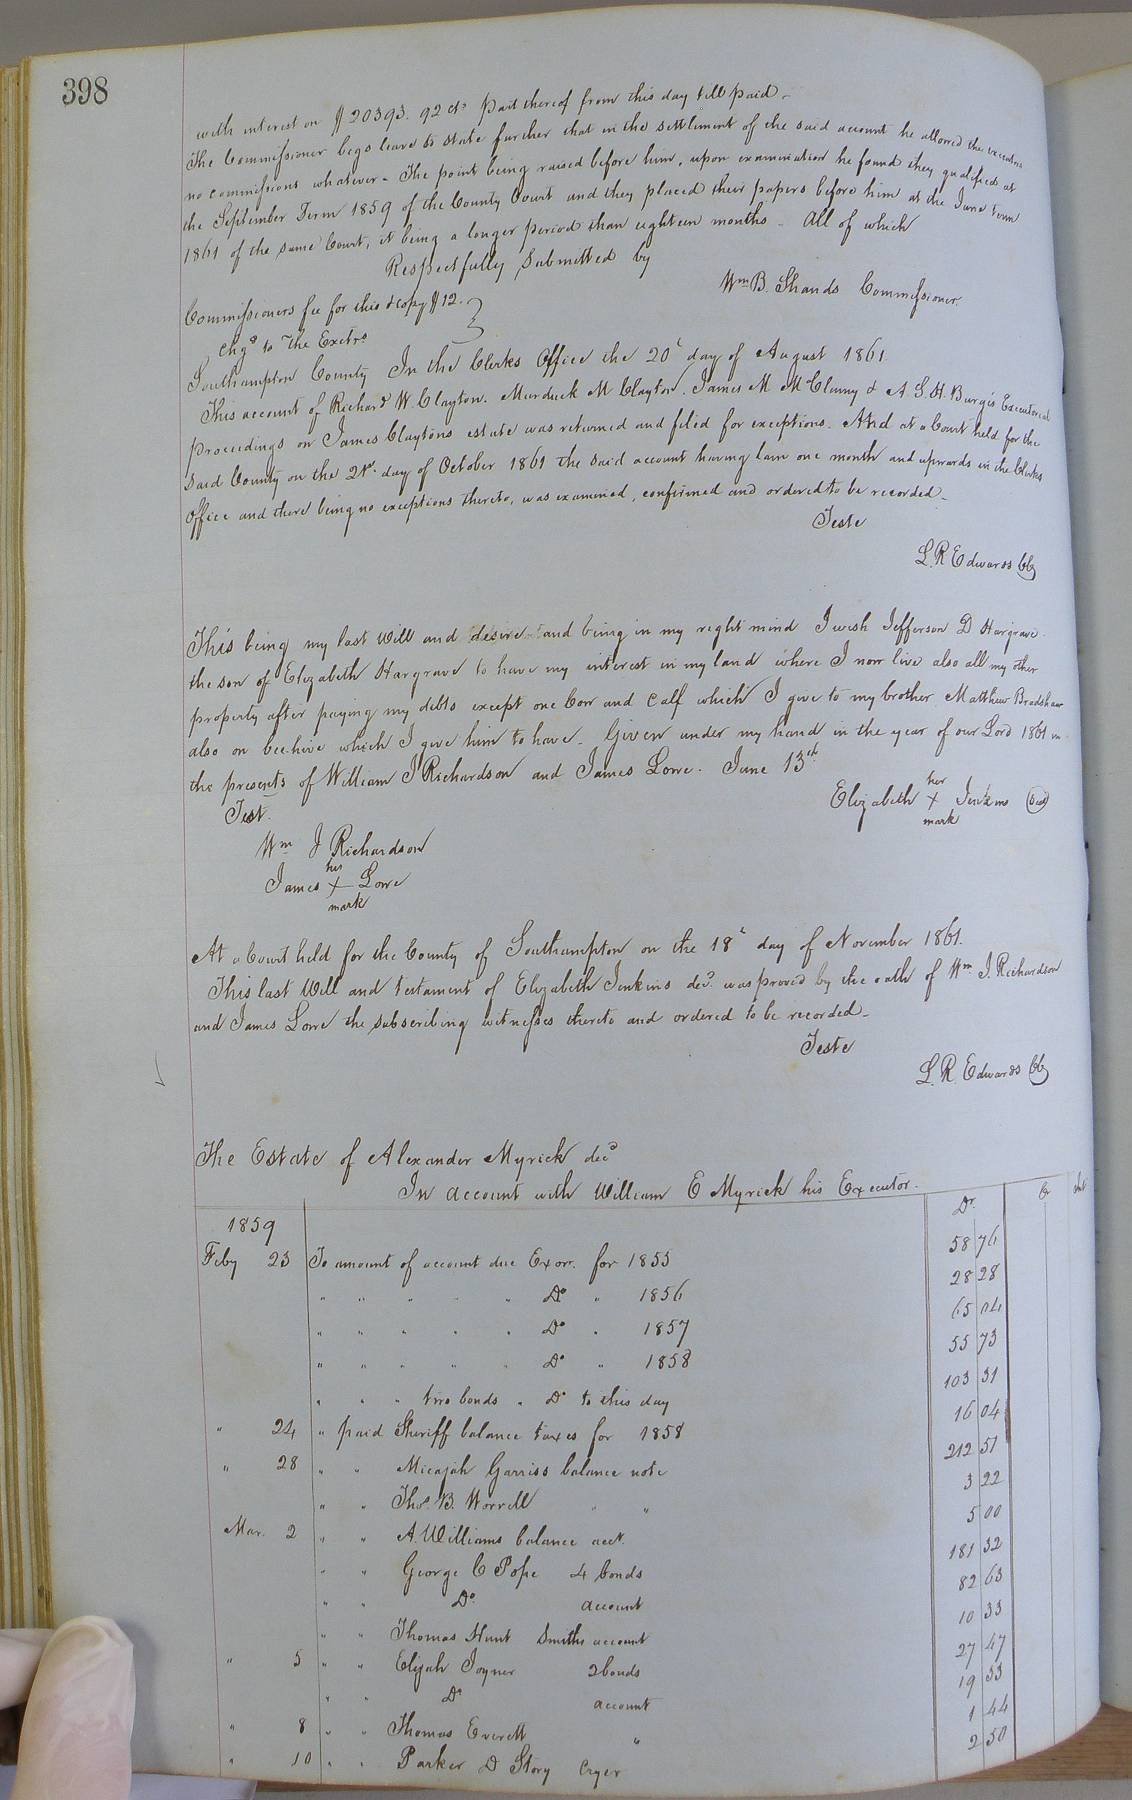 398
with interest on $20393.92 cts part thereof from this day till paid -
The Commissioner begs leave to state further that in the settlement of the said account he allowed the executors
no commissions whatever - The point being raised before him, upon examination he found they qualified at
the September Term 1859 of the County Court and they placed their papers before him at the June term
1861 of the same Court, it being a longer period than eighteen months - All of which
Respectfully submitted by
Wm B. Shands Commissioner.
Commissioners fee for this & copy $12. }
chgd to the Exctrs
Southampton County In the Clerks Office the 20t day of August 1861
This account of Richard W. Clayton. Murduck M Clayton. James M McClenny & A. S. H. Burgis Executorial
proceedings on James Claytons estate was returned and filed for exceptions. And at a Court held for the
said County on the 21st day of October 1861 the said account having lain one month and upwards in the Clerks
Office and there being no exceptions thereto, was examined, confirmed and ordered to be recorded -
Teste
L. R Edwards Clk
This being my last Will and desire and being in my right mind I wish Jefferson D Hargrave
the son of Elizabeth Hargrave to have my interest in my land where I now live also all my other
property after paying my debts except one Cow and Calf which I give to my brother Matthew Bradshaw
also on bee-hive which I give him to have - Given under my hand in the year of our Lord 1861 in
the presents of William J Richardson and James Lowe. June 13th
Test.
Elizabeth her x mark Jenkins (Seal)
Wm J Richardson
James his x mark Lowe
At a Court held for the County of Southampton on the 18t day of November 1861.
This last Will and testament of Elizabeth Jenkins decd was proved by the oath of Wm J. Richardson
and James Lowe the subscribing witnesses thereto and ordered to be recorded -
Teste
L. R. Edwards Clk
The Estate of Alexander Myrick decd
In account with William E Myrick his Executor.
Dr. Cr
1859
Feby 23 To amount of account due Exor. for 1855 58 76
" " " " " Do " 1856 28 28
" " " " " Do " 1857 65 04
" " " " " Do " 1858 55 73
" " " two bonds " Do to this day 103 31
" 24 " paid Sheriff balance taxes for 1858 16 04
" 28 " " Micajah Garriss balance note 212 51
" " Thos. B. Worrell " " 3 22
Mar. 2 " " A. Williams balance acct. 5 00
" " George C Pope 4 bonds 181 32
" " Do. account 82 63
" " Thomas Hunt Smiths account 10 33
" 5 " " Elijah Joyner 2 bonds 27 47
" " Do account 19 33
" 8 " " Thomas Everett " 1 44
" 10 " " Parker D Story Cryer 2 50